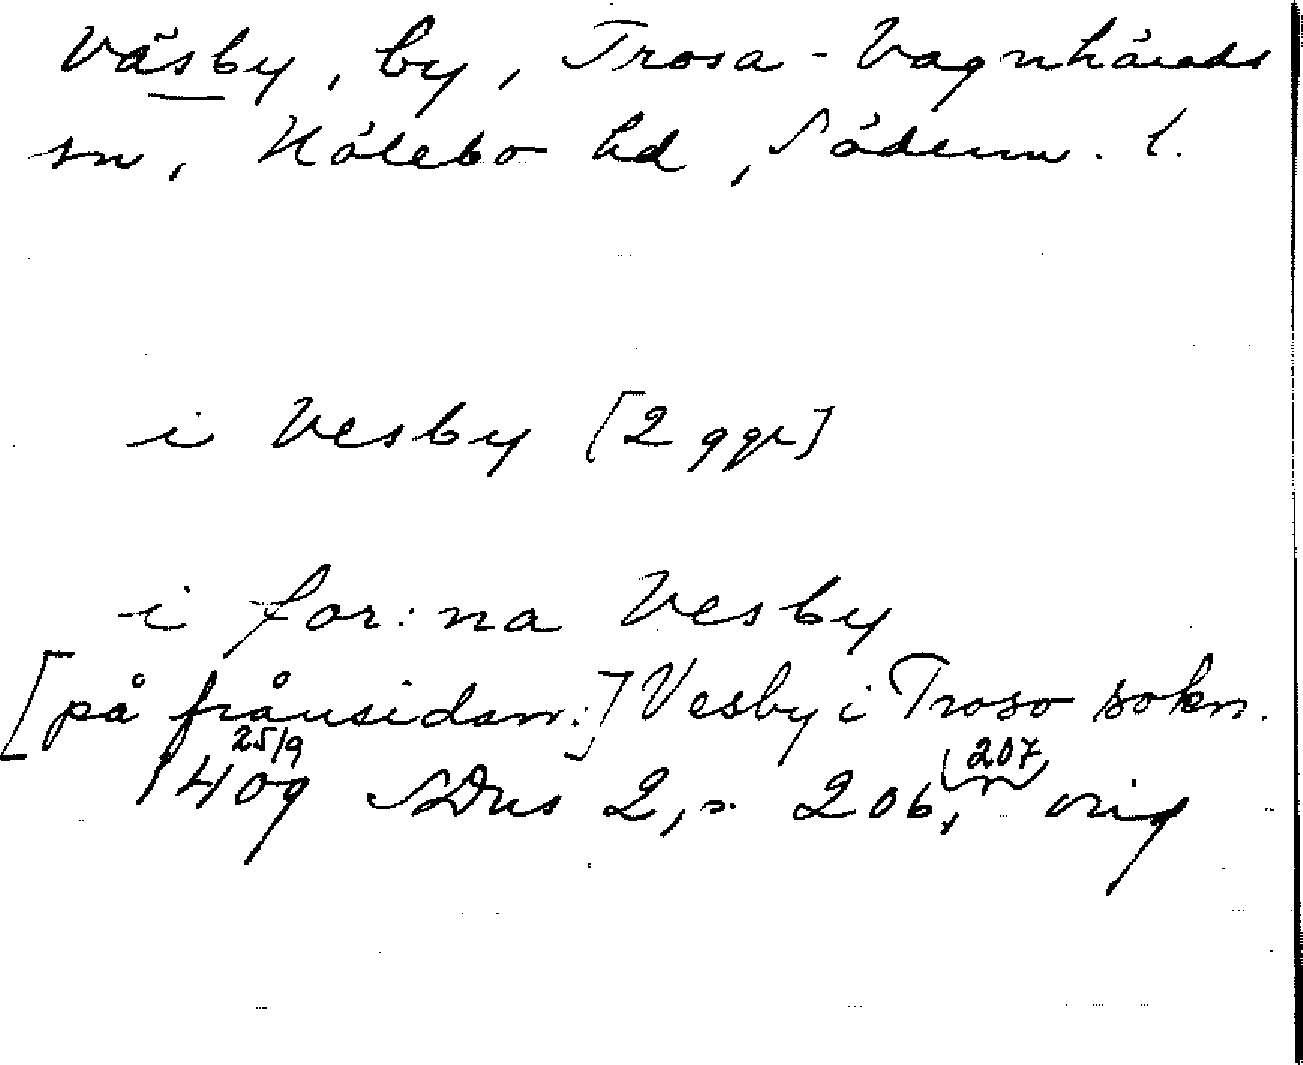 Väsby, by, Trosa-Vagnhärads
sn, Hölebo hd, Söderm. l.
i Vesby [2 ggr]
i for:na Vesby
[på frånsidan:] Vesby i Troso sokn.
25/9 207
1409 SDns 2, s. 206, orig